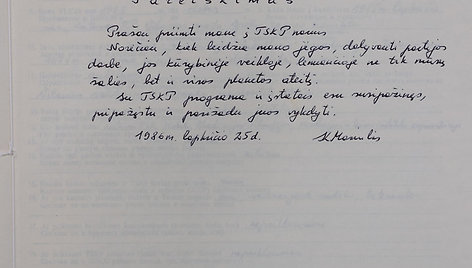 Pareiškimas
Prašau priimti mane į TSKP narius
Norėčiau, kiek leidžia mano jėgos, dalyvauti partijos
darbe, jos kūrybinėje veikloje, lemiančioje ne tik mūsų
šalies, bet ir visos planetos ateitį.
Su TSKP programa ir įstatais esu susipažinęs,
pripažįstu ir pasižadu juos vykdyti.
1986 m. lapkričio 25 d.